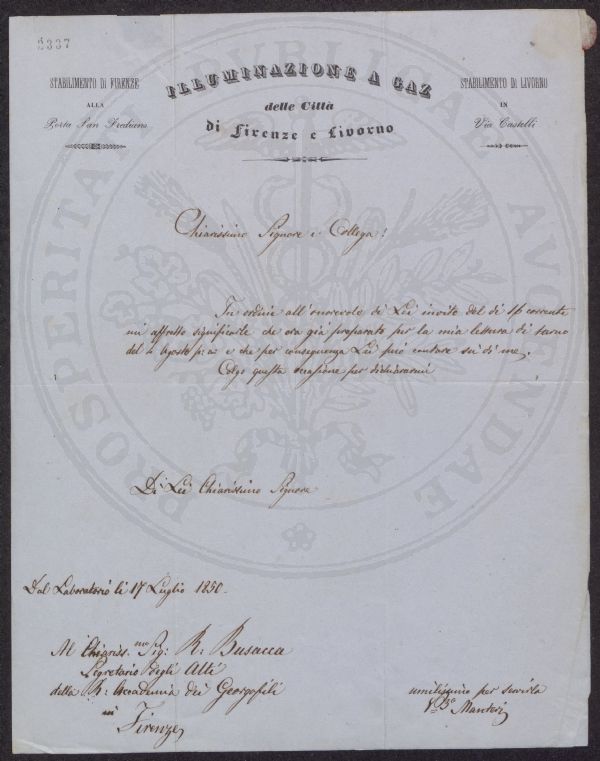 5337
STABILIMENTO DI FIRENZE
ALLA
Porta San Frediano
ILLUMINAZIONE A GAZ
delle Città
di Firenze e Livorno
STABILIMENTO DI LIVORNO
IN
Via Castelli
PROSPERITATI PUBLICAE AUGENDAE
Chiarissimo Signore e Collega!
In ordine all'onorevole di Lei invito del dì 16 corrente
mi affretto significarle che era già preparato per la mia lettura di turno
del 4 Agosto p: e che per conseguenza Lei può contare su di me.
Colgo questa occasione per dichiararmi
Di Lei Chiarissimo Signore
Dal Laboratorio li 17 Luglio 1850.
Al Chiariss.mo Sig: R: Busacca
Segretario degli Atti
della R: Accademia dei Georgofili
in
Firenze
umilissimo per servirla